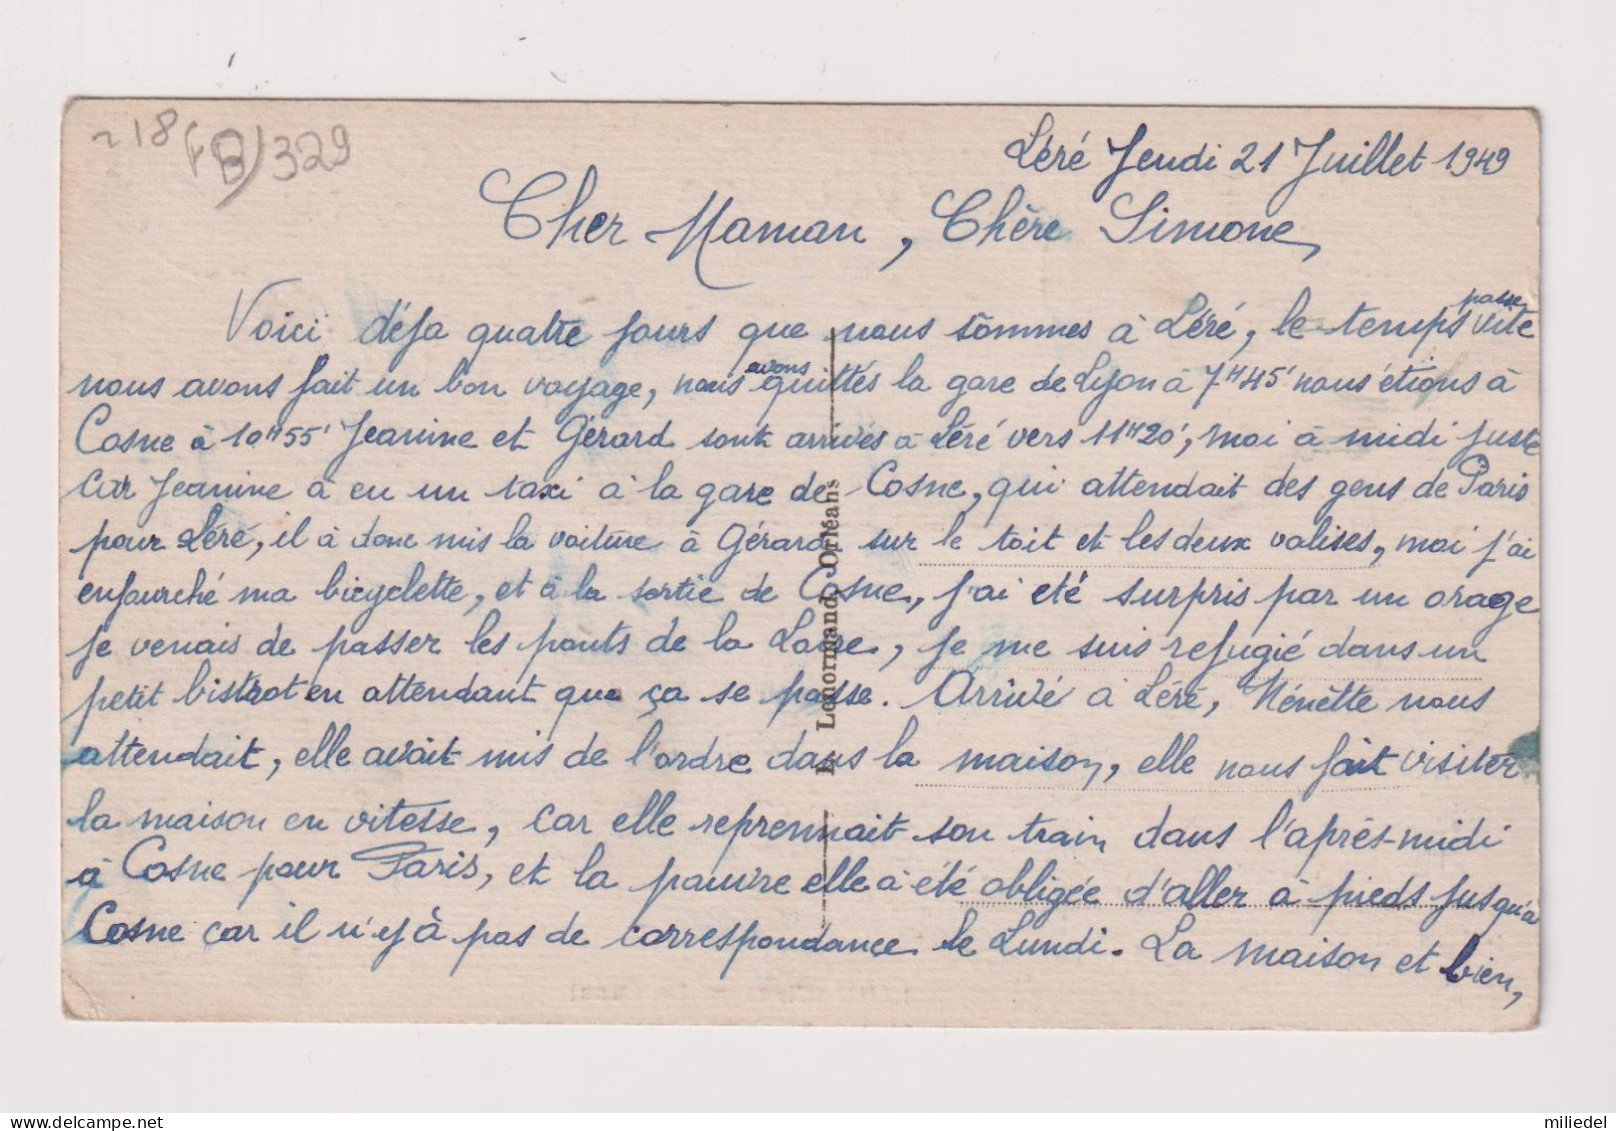 ~ 18 (FB) 329
Léré Jeudi 21 Juillet 1949
Cher Maman, Chère Simone,
passe
Voici déja quatre jours que nous sommes à Léré, le temps vite
avons
nous avons fait un bon voyage, nous quittés la gare de Lyon à 7H45' nous étions à
Cosne à 10H55' Jeanine et Gérard sont arrivés à Léré vers 11H20', moi à midi juste
car Jeanine à eu un taxi à la gare de Cosne, qui attendait des gens de Paris
pour Léré, il à donc mis la voiture à Gérard sur le toit et les deux valises, moi j'ai
enfourché ma bicyclette, et à la sortie de Cosne, j'ai été surpris par un orage
je venais de passer les ponts de la Loire, je me suis refugié dans un
petit bistrot en attendant que ça se passe. Arrivé à Léré, Nénètte nous
attendait, elle avait mis de l'ordre dans la maison, elle nous fait visiter
la maison en vitesse, car elle reprennait son train dans l'après-midi
à Cosne pour Paris, et la pauvre elle à été obligée d'aller à pieds jusqu'à
Cosne car il n'y à pas de correspondance le Lundi. La maison et bien,
L. Lenormand, Orléans
miliedel